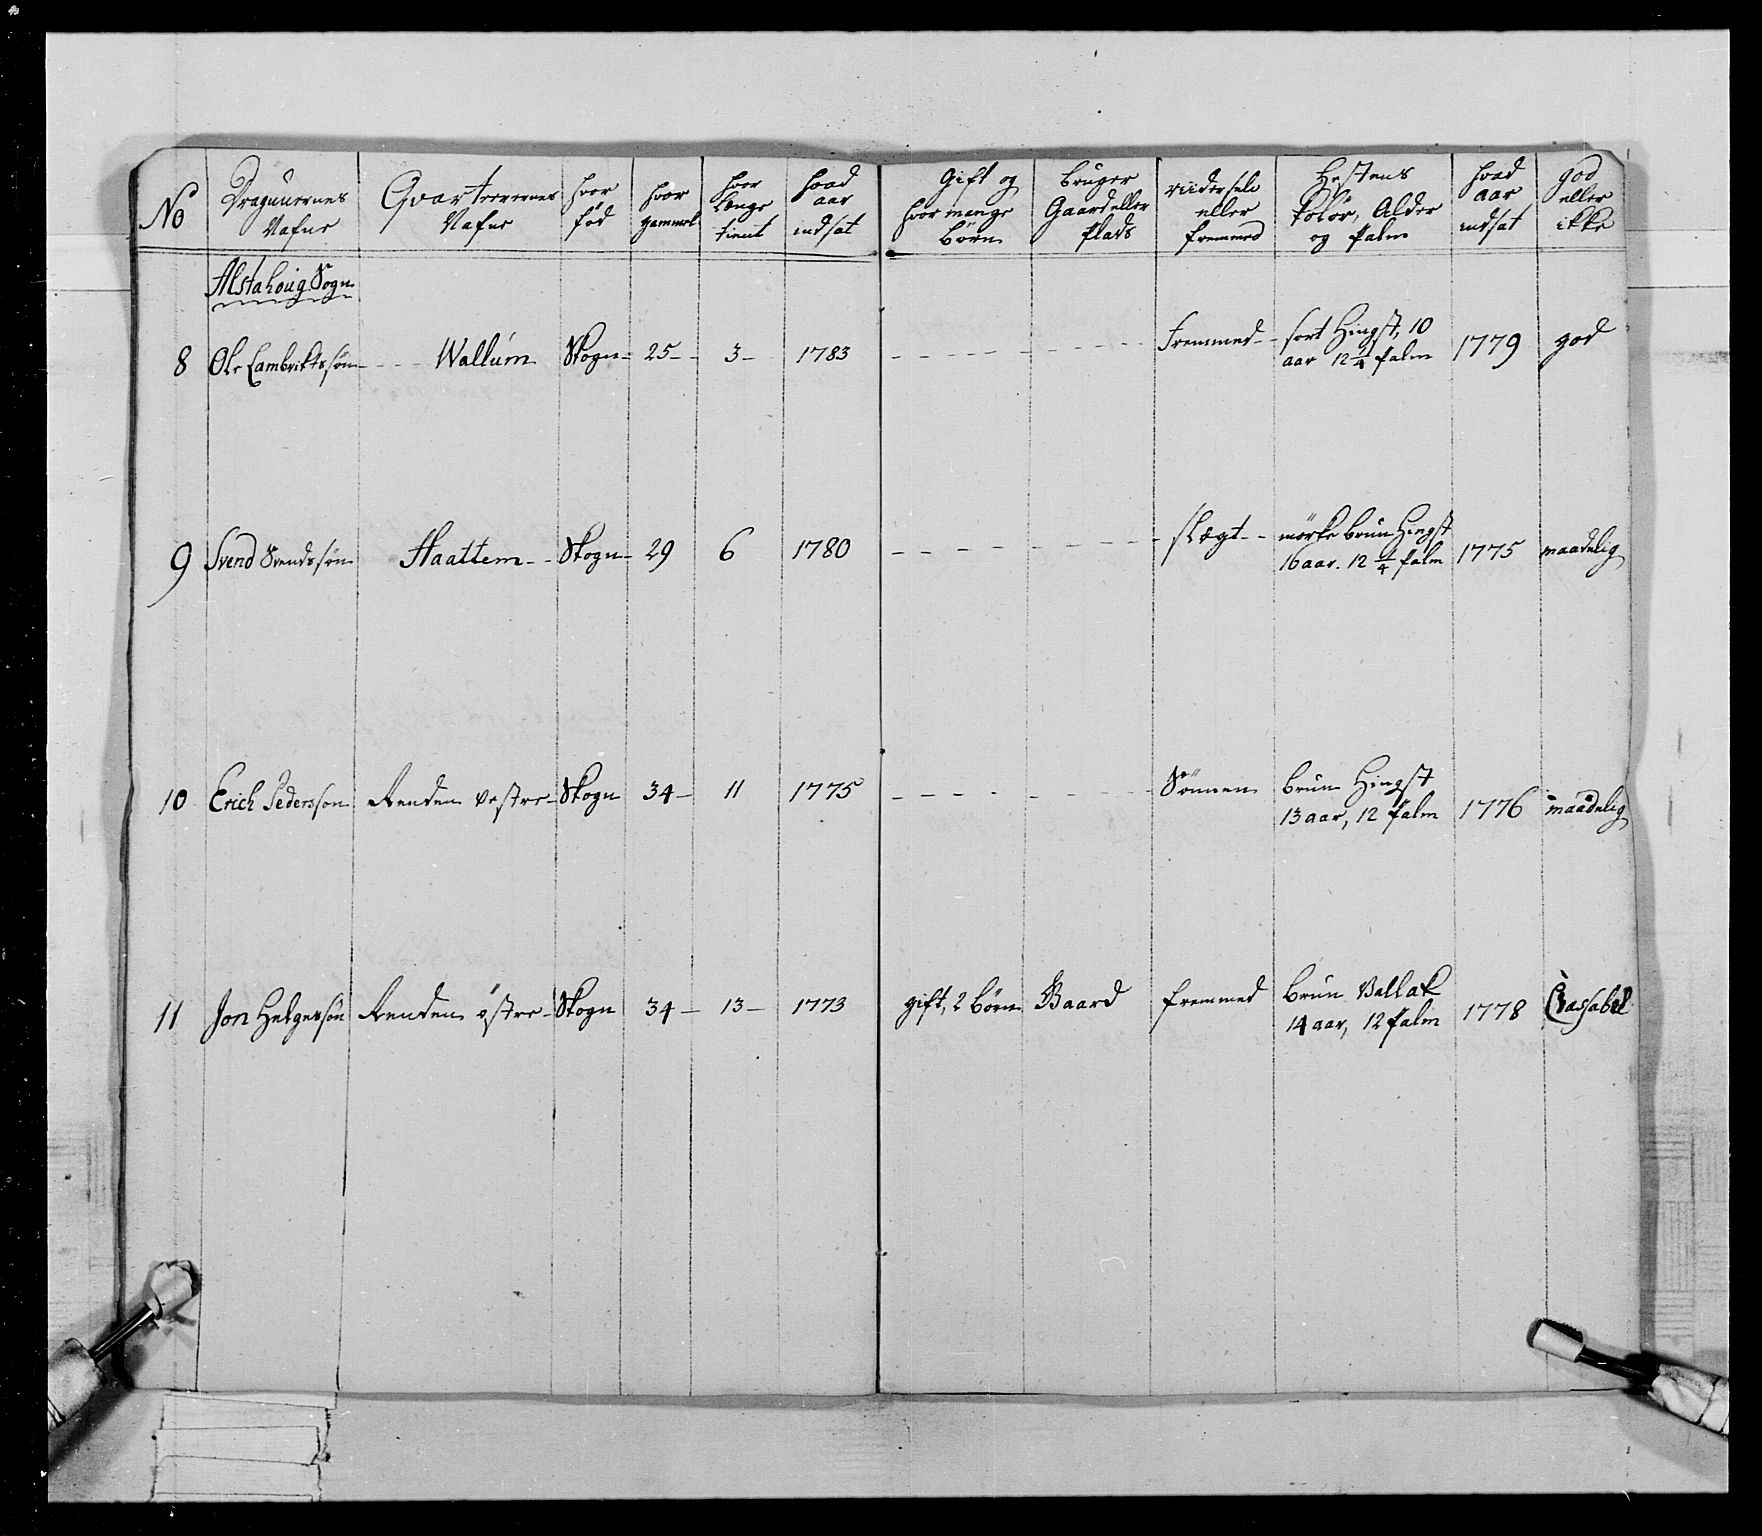 No | Dragunernes Nafne | Qvarterernes Nafne | hvor fød | hvor gammel | hvor længe tient | hvad aar indsat | Gift og hvor mange børn | bruger Gaard eller plads | eller fremmed | Hestens kolör, Alder og palm | hvad aar indsat | god eller ikke
Alstahoug Sogn
8 | Ole Lambriktssøn | Wallum | Skogn | 25 | 3 | 1783 | | | Fremmed | sort Hingst, 10 aar 12 1/4 palm | 1779 | god
9 | Svend Svendssøn | Haattem | Skogn | 29 | 6 | 1780 | | | slegt | mörke brun Hingst 16 aar. 12 1/4 palm | 1775 | maadelig
10 | Erich Pederssøn | Renden vestre | Skogn | 34 | 11 | 1775 | | | Sönnen | brun Hingst 13 aar, 12 palm | 1776 | maadelig
11 | Jon Helgessøn | Renden östre | Skogn | 34 | 13 | 1773 | gift, 2 børn | Gaard | fremmed | brun Vallak 14 aar, 12 palm | 1778 | Cassabel